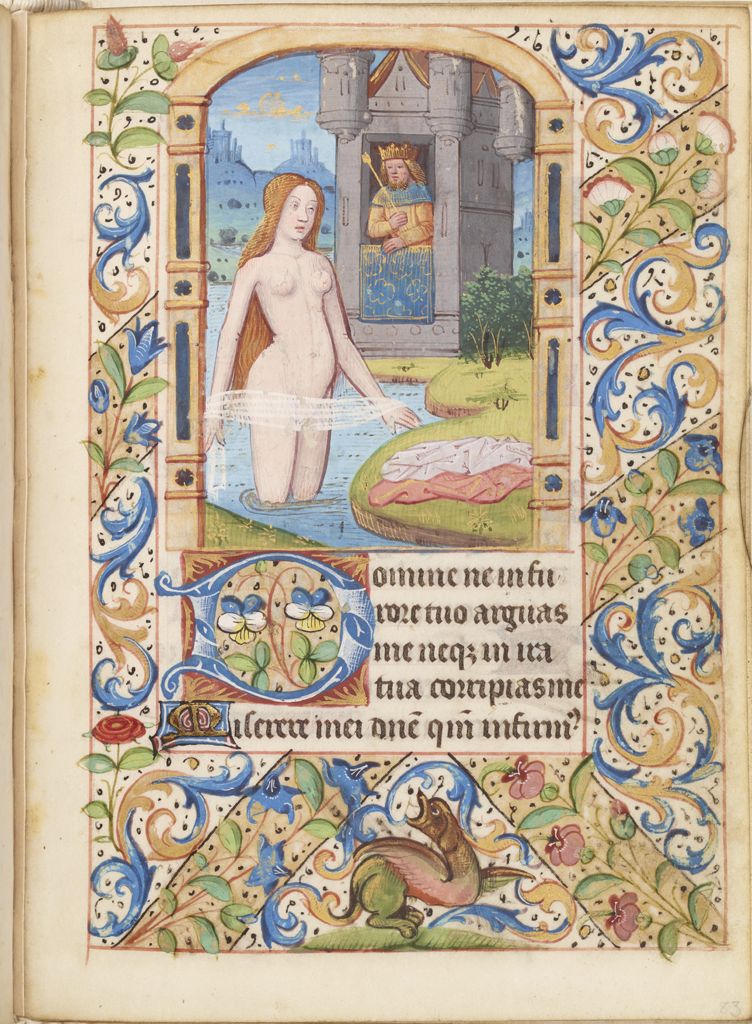 Domine ne in fu
rore tuo arguas
me neqꝫ in ira
tua corripias me
Miserere mei dn̄e qm̄ infirmꝰ
83